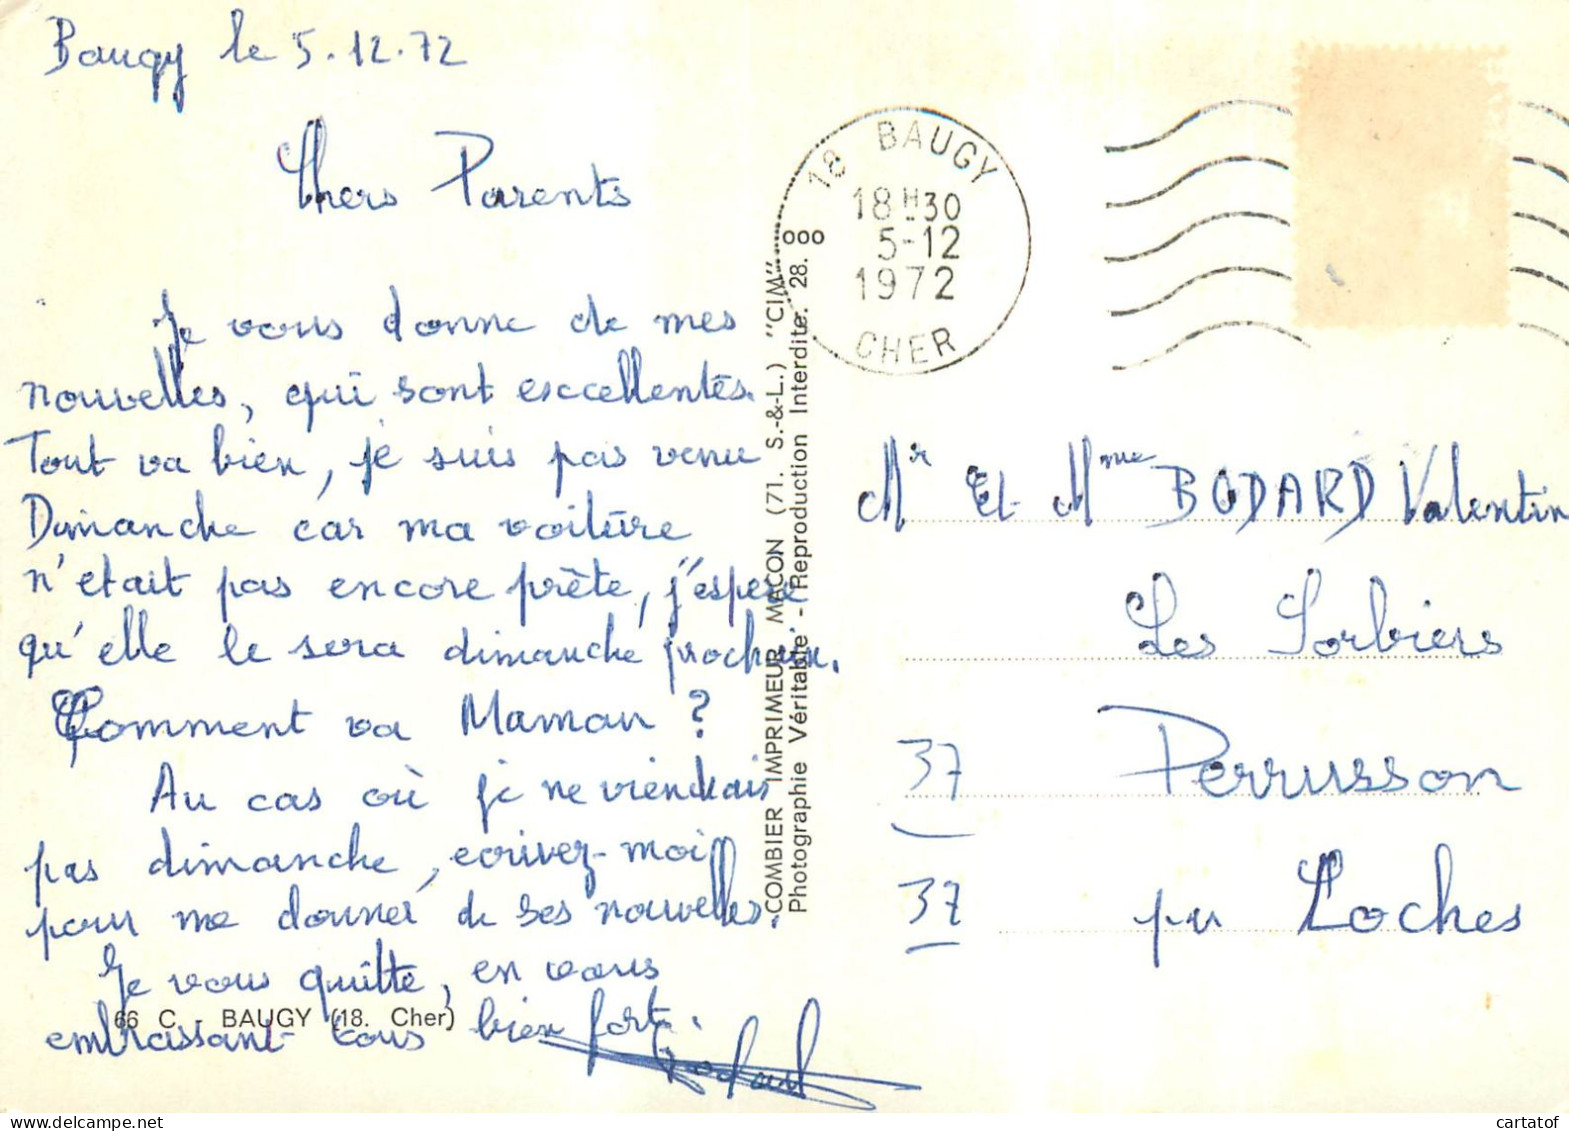 Baugy le 5.12.72
Chers Parents
Je vous donne de mes
nouvelles, qui sont exccellentes.
Tout va bien, je suis pas venu
Dimanche car ma voiture
n'etait pas encore prète, j'espere
qu'elle le sera dimanche prochain.
Comment va Maman ?
Au cas où je ne viendrais
pas dimanche, ecrivez-moi
pour me donner de ses nouvelles.
Je vous quitte, en vous
embrassant tous bien fort.
66 C - BAUGY (18. Cher)
COMBIER IMPRIMEUR MACON (71. S.-&-L.) "CIM"
Photographie Véritable - Reproduction Interdite. 28. 000
18 BAUGY
18H30
5-12
1972
CHER
Mr Et Mme BODARD Valentin
Les Sorbiers
37 Perrusson
37 pu Loches
cartatof